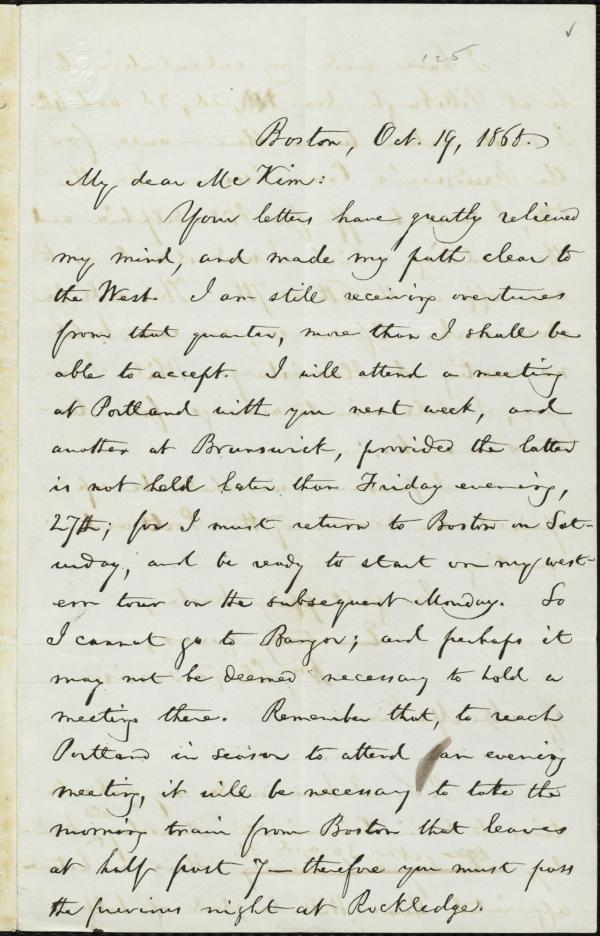 125
Boston, Oct. 19, 1865.
My dear McKim:
Your letters have greatly relieved
my mind, and made my path clear to
the West. I am still receiving overtures
from that quarter, more than I shall be
able to accept. I will attend a meeting
at Portland with you next week, and
another at Brunswick, provided the latter
is not held later than Friday evening,
27th; for I must return to Boston on Sat-
urday, and be ready to start on my west-
ern tour on the subsequent Monday. So
I cannot go to Bangor; and perhaps it
may not be deemed necessary to hold a
meeting there. Remember that, to reach
Portland in season to attend an evening
meeting, it will be necessary to take the
morning train from Boston that leaves
at half past 7—therefore you must pass
the previous night at Rockledge.